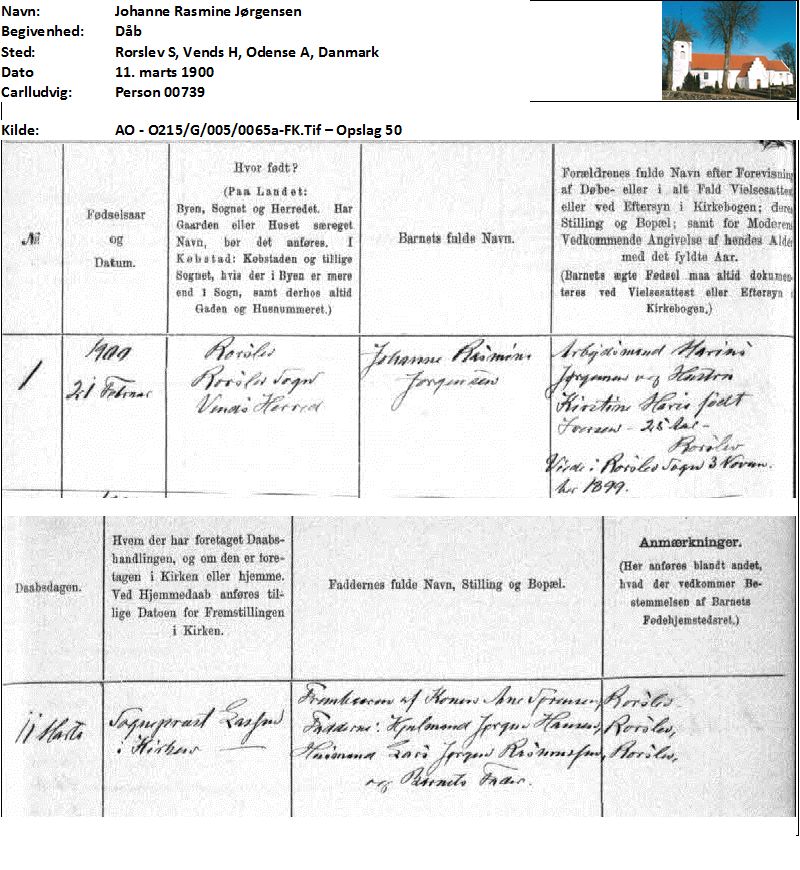 Navn: Johanne Rasmine Jørgensen
Begivenhed: Dåb
Sted: Rorslev S, Vends H, Odense A, Danmark
Dato 11. marts 1900
Carlludvig: Person 00739
Kilde: AO - O215/G/005/0065a-FK.Tif – Opslag 50
№
Fødselsaar
og
Datum.
Hvor født?
(Paa Landet:
Byen, Sognet og Herredet. Har
Gaarden eller Huset særeget
Navn, bør det anføres. I
Købstad: Købstaden og tillige
Sognet, hvis der i Byen er mere
end 1 Sogn, samt derhos altid
Gaden og Husnummeret.)
Barnets fulde Navn.
Forældrenes fulde Navn efter Forevisning
af Døbe- eller i alt Fald Vielsesattest
eller ved Eftersyn i Kirkebogen; deres
Stilling og Bopæl; samt for Moderens
Vedkommende Angivelse af hendes Alder
med det fyldte Aar.
(Barnets ægte Fødsel maa altid dokumen-
teres ved Vielsesattest eller Eftersyn i
Kirkebogen.)
1
1900
21 Februar
Rorslev
Rorslev Sogn
Vends Herred
Johanne Rasmine
Jørgensen
Arbejdsmand
Jørgensen og Hustru
Kirstine født
Iversen - 25 Aar -
Rorslev
Viede i Rorslev Sogn 3 Novem-
ber 1899.
Daabsdagen.
Hvem der har foretaget Daabs-
handlingen, og om den er fore-
tagen i Kirken eller hjemme.
Ved Hjemmedaab anføres til-
lige Datoen for Fremstillingen
i Kirken.
Faddernes fulde Navn, Stilling og Bopæl.
Anmærkninger.
(Her anføres blandt andet,
hvad der vedkommer Be-
stemmelsen af Barnets
Fødehjemstedsret.)
11 Marts
Sognepræst Lassen
i Kirken
Frembaaren af Konen Ane Sørensen, Rorslev.
Fadderne: Hjulmand Jørgen Hansen, Rorslev,
Husmand Lars Jørgen Rasmussen, Rorslev,
og Barnets Fader.